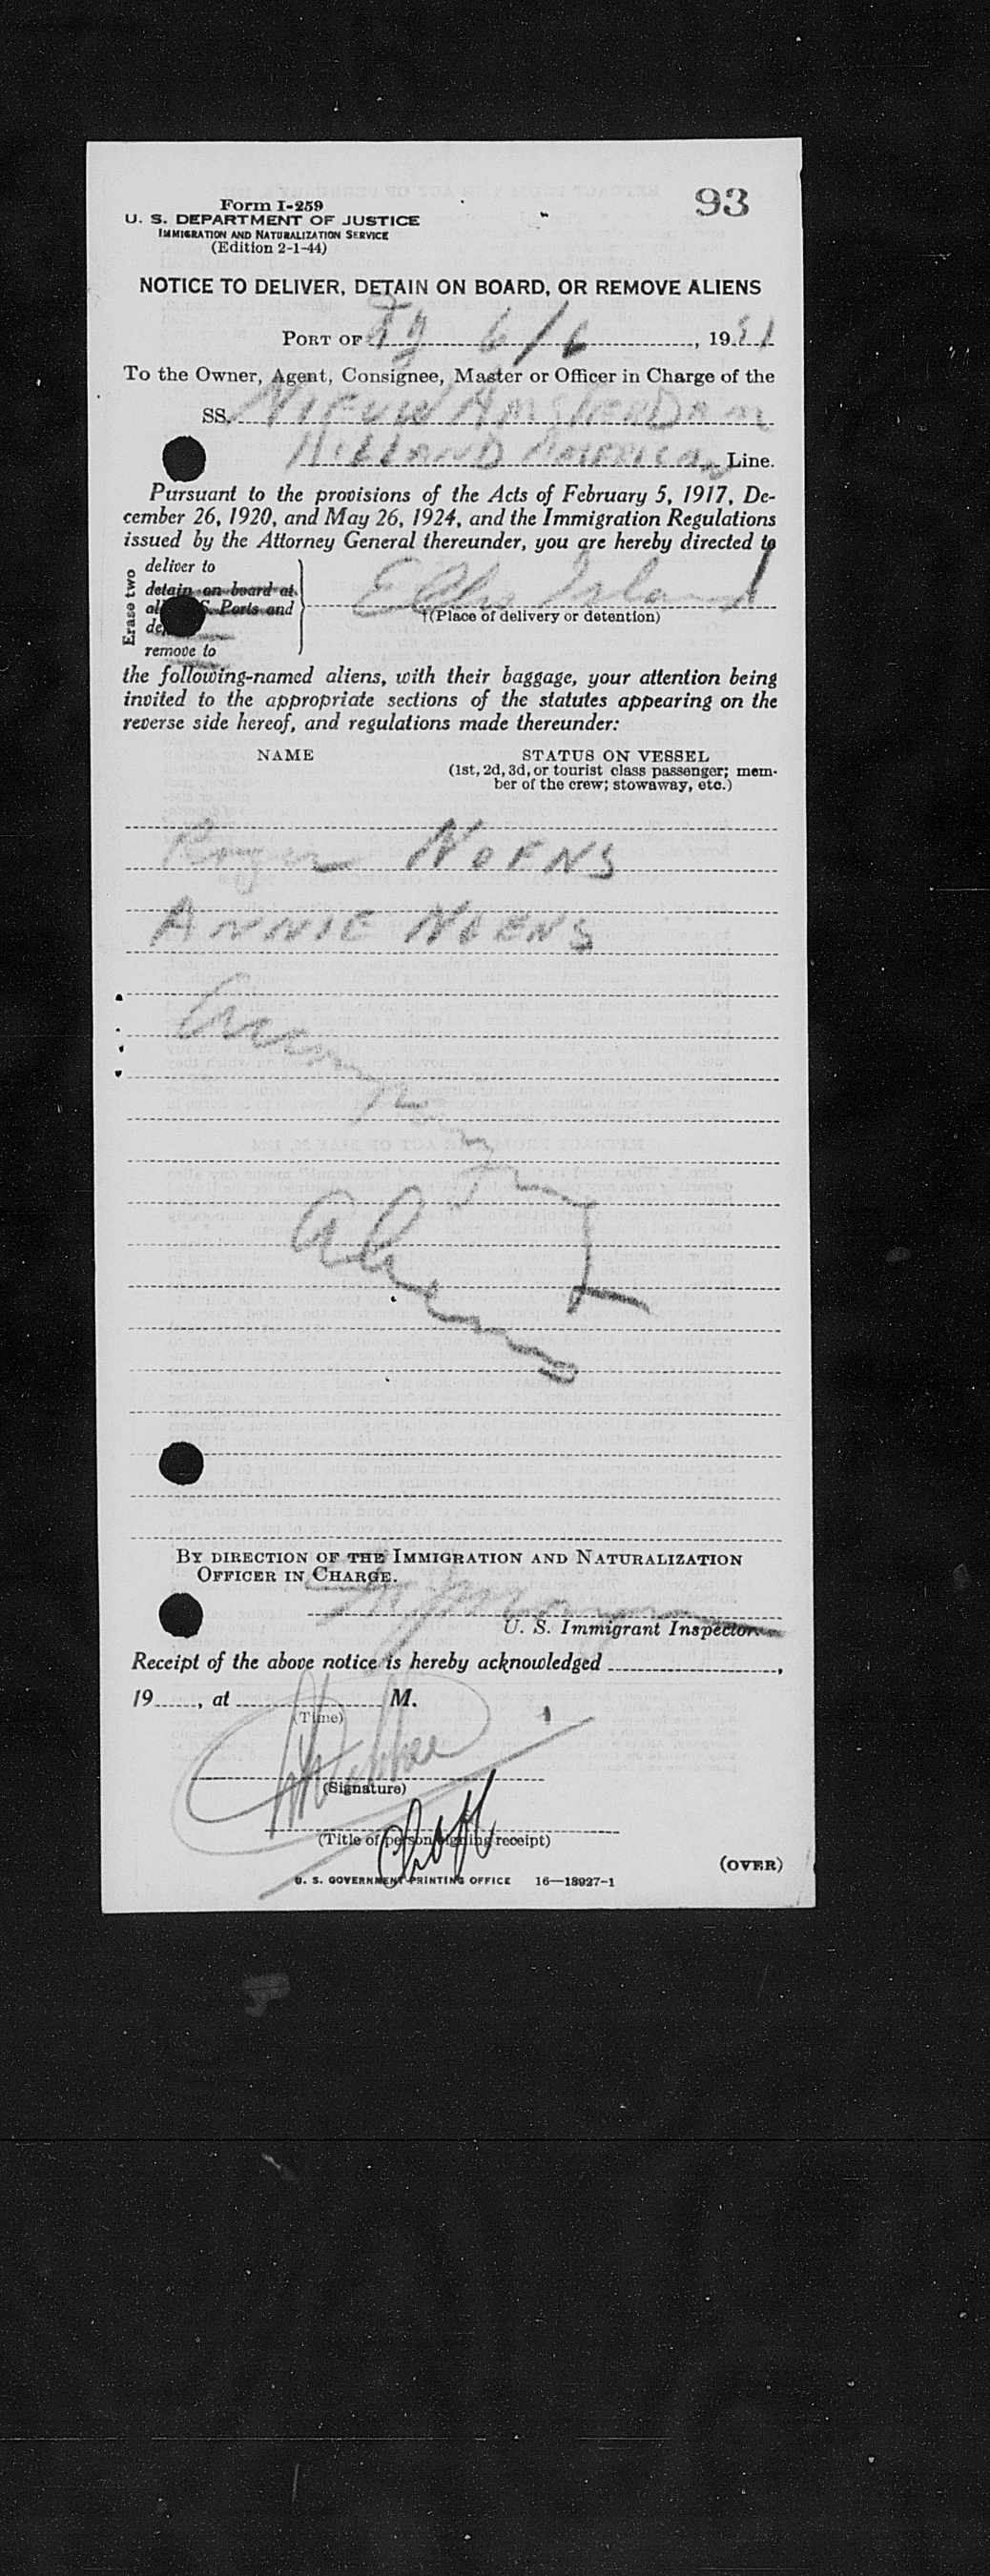 93
Form I-259
U. S. DEPARTMENT OF JUSTICE
IMMIGRATION AND NATURALIZATION SERVICE
(Edition 2-1-44)
NOTICE TO DELIVER, DETAIN ON BOARD, OR REMOVE ALIENS
PORT OF 6/6, 1951
To the Owner, Agent, Consignee, Master or Officer in Charge of the
SS. NIEUW AMSTERDAM
HOLLAND AMERICAN Line.
Pursuant to the provisions of the Acts of February 5, 1917, De-
cember 26, 1920, and May 26, 1924, and the Immigration Regulations
issued by the Attorney General thereunder, you are hereby directed to
Erase two
deliver to
detain on board at
S. Ports and
remove to
Ellis Island
†(Place of delivery or detention)
the following-named aliens, with their baggage, your attention being
invited to the appropriate sections of the statutes appearing on the
reverse side hereof, and regulations made thereunder:
NAME STATUS ON VESSEL
(1st, 2d, 3d, or tourist class passenger; mem-
ber of the crew; stowaway, etc.)
Roger NOENS
ANNIE NOENS
Accompanying
Aliens
BY DIRECTION OF THE IMMIGRATION AND NATURALIZATION
OFFICER IN CHARGE.
U. S. Immigrant Inspector.
Receipt of the above notice is hereby acknowledged ,
19 , at M.
(Time)
(Signature)
(Title of person signing receipt)
(OVER)
U. S. GOVERNMENT PRINTING OFFICE 16—18927-1